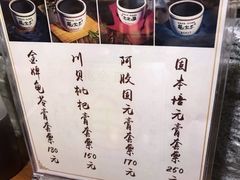 固本培元膏套票 250元
阿胶固元膏套票 170元
川贝枇杷膏套票 150元
金牌龟苓膏套票 180元